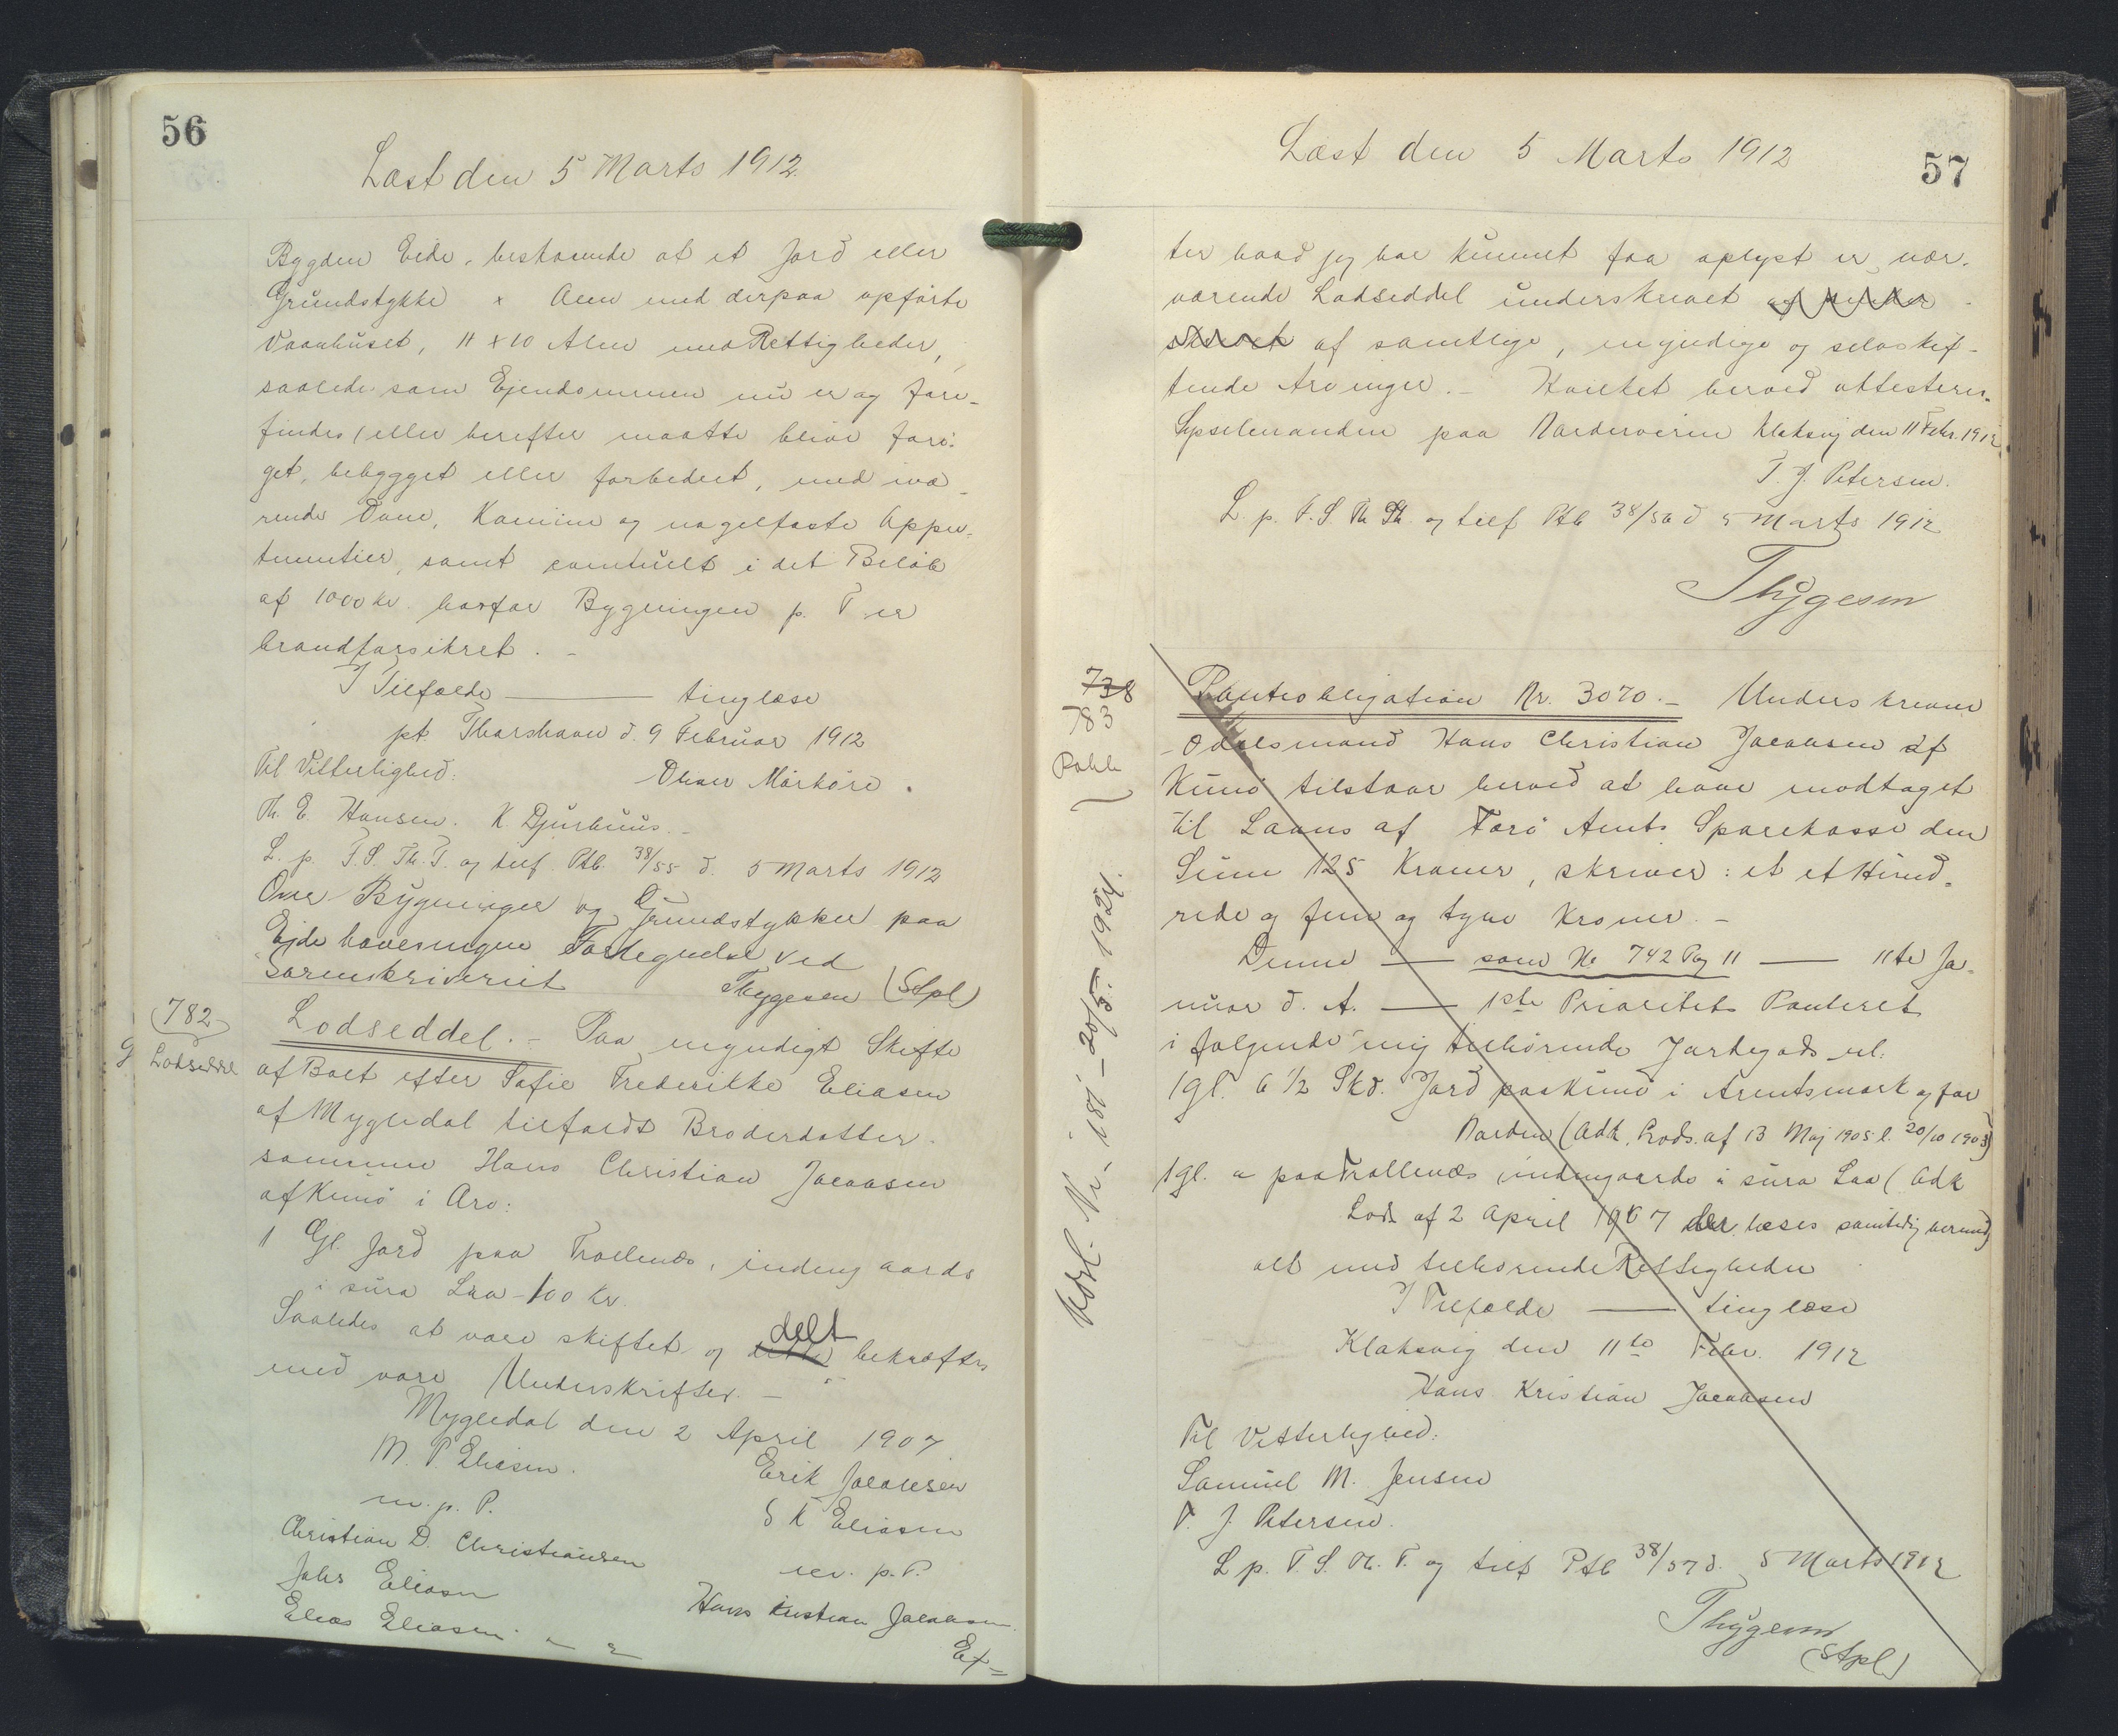 56
Læst den 5 Marts 1912.
Bygden Eide, bestaaende af et Jord eller
Grundstykke x Alen med derpaa opførte
Vaanhuset, 11 x 10 Alen med Rettigheder,
saaledes som Ejendommen nu er og fore-
findes (eller herefter maatte blive forø-
get, bebygget eller forbedret, med væ-
rende Ovne, Kamine og nagelfaste Appe-
tinentier, samt eventuelt i det Beløb
af 1000 kr. hvorfor Bygningen p. T er
brandforsikret. -
I Tilfælde ——— tinglæse
pt. Thorshavn d. 9 Februar 1912
Til Vitterlighed: Oliver Mørköre.
Th. E. Hansen. K. Djurhuus. -
L. p. F. S. Th. T. og tilf. Ptb. 38/55 d. 5 Marts 1912
Over Bygninger og Grundstykker paa
Ejde haves ingen Fortegnelse ved
Sorenskriveriet Thygesen (Stpl)
782
g Lodseddel
Lodseddel. - Paa myndigt Skifte
af Boet efter Sofie Frederikke Eliasen
af Mygledal tilfaldt Broderdatter-
sønnen Hans Christian Jacobsen
af Kunø i Arv:
1 Gl. Jord paa Trollenæs, indengaards
i sura Laa - 100 Kr.
Saaledes at være skiftet og delt bekræftes
med vore Underskrifter. -
Mygledal den 2 April 1907
M. P. Eliasen. Erik Jacobsen
m. p. P. S K Eliasen
Christian D. Christiansen m. p. P.
Johs Eliasen Hans Kristian Jacobsen
Elias Eliasen
Ef=
57
Læst den 5 Marts 1912
ter hvad jeg har kunnet faa oplyst er nær-
værende Lodseddel underskrevet
af samtlige, myndige og selvskif-
tende Arvinger. - Hvilket herved attesteres.
Sysselmanden paa Norderøerne Klaksvig den 11 Febr. 1912
T. J. Petersen.
L. p. F. S. Th. Th. og tilf Ptb 38/56 d 5 Marts 1912
Thygesen
738
783
Pobl
Panteobligation Nr. 3070. - Underskrevne
Odelsmand Hans Christian Jacobsen af
Kunø tilstaar herved at have modtaget
til Laans af Færø Amts Sparekasse den
Sum 125 Kroner, skriver: et et Hund-
rede og fem og tyve Kroner. -
Denne — som No 742 Pag 11 — 11te Ja-
nuar d. A. — 1ste Prioritets Panteret
i følgende mig tilhørende Jordegods vel:
1 gl. 6 1/2 Skd. Jord paa Kunø i Arentsmark og for
Norden (Adk. Lods. af 13 Maj 1905 l. 20/10 1908)
1 gl. " paa Trollenæs indengaards i sura Laa (Adk
Lods af 2 April 1907 der læses samtidig hermed)
alt med tilhørende Rettigheder
I Tilfælde —— tinglæse
Klaksvig den 11te Febr. 1912
Hans Kristian Jacobsen
Til Vitterlighed:
Samuel M. Jensen
T. J. Petersen.
L p. F. S. Th. T. og tilf Ptb 38/57 d. 5 Marts 1912
Thygesen
(Stpl)
Udsl. Nr. 181 - 20/5. 1924.